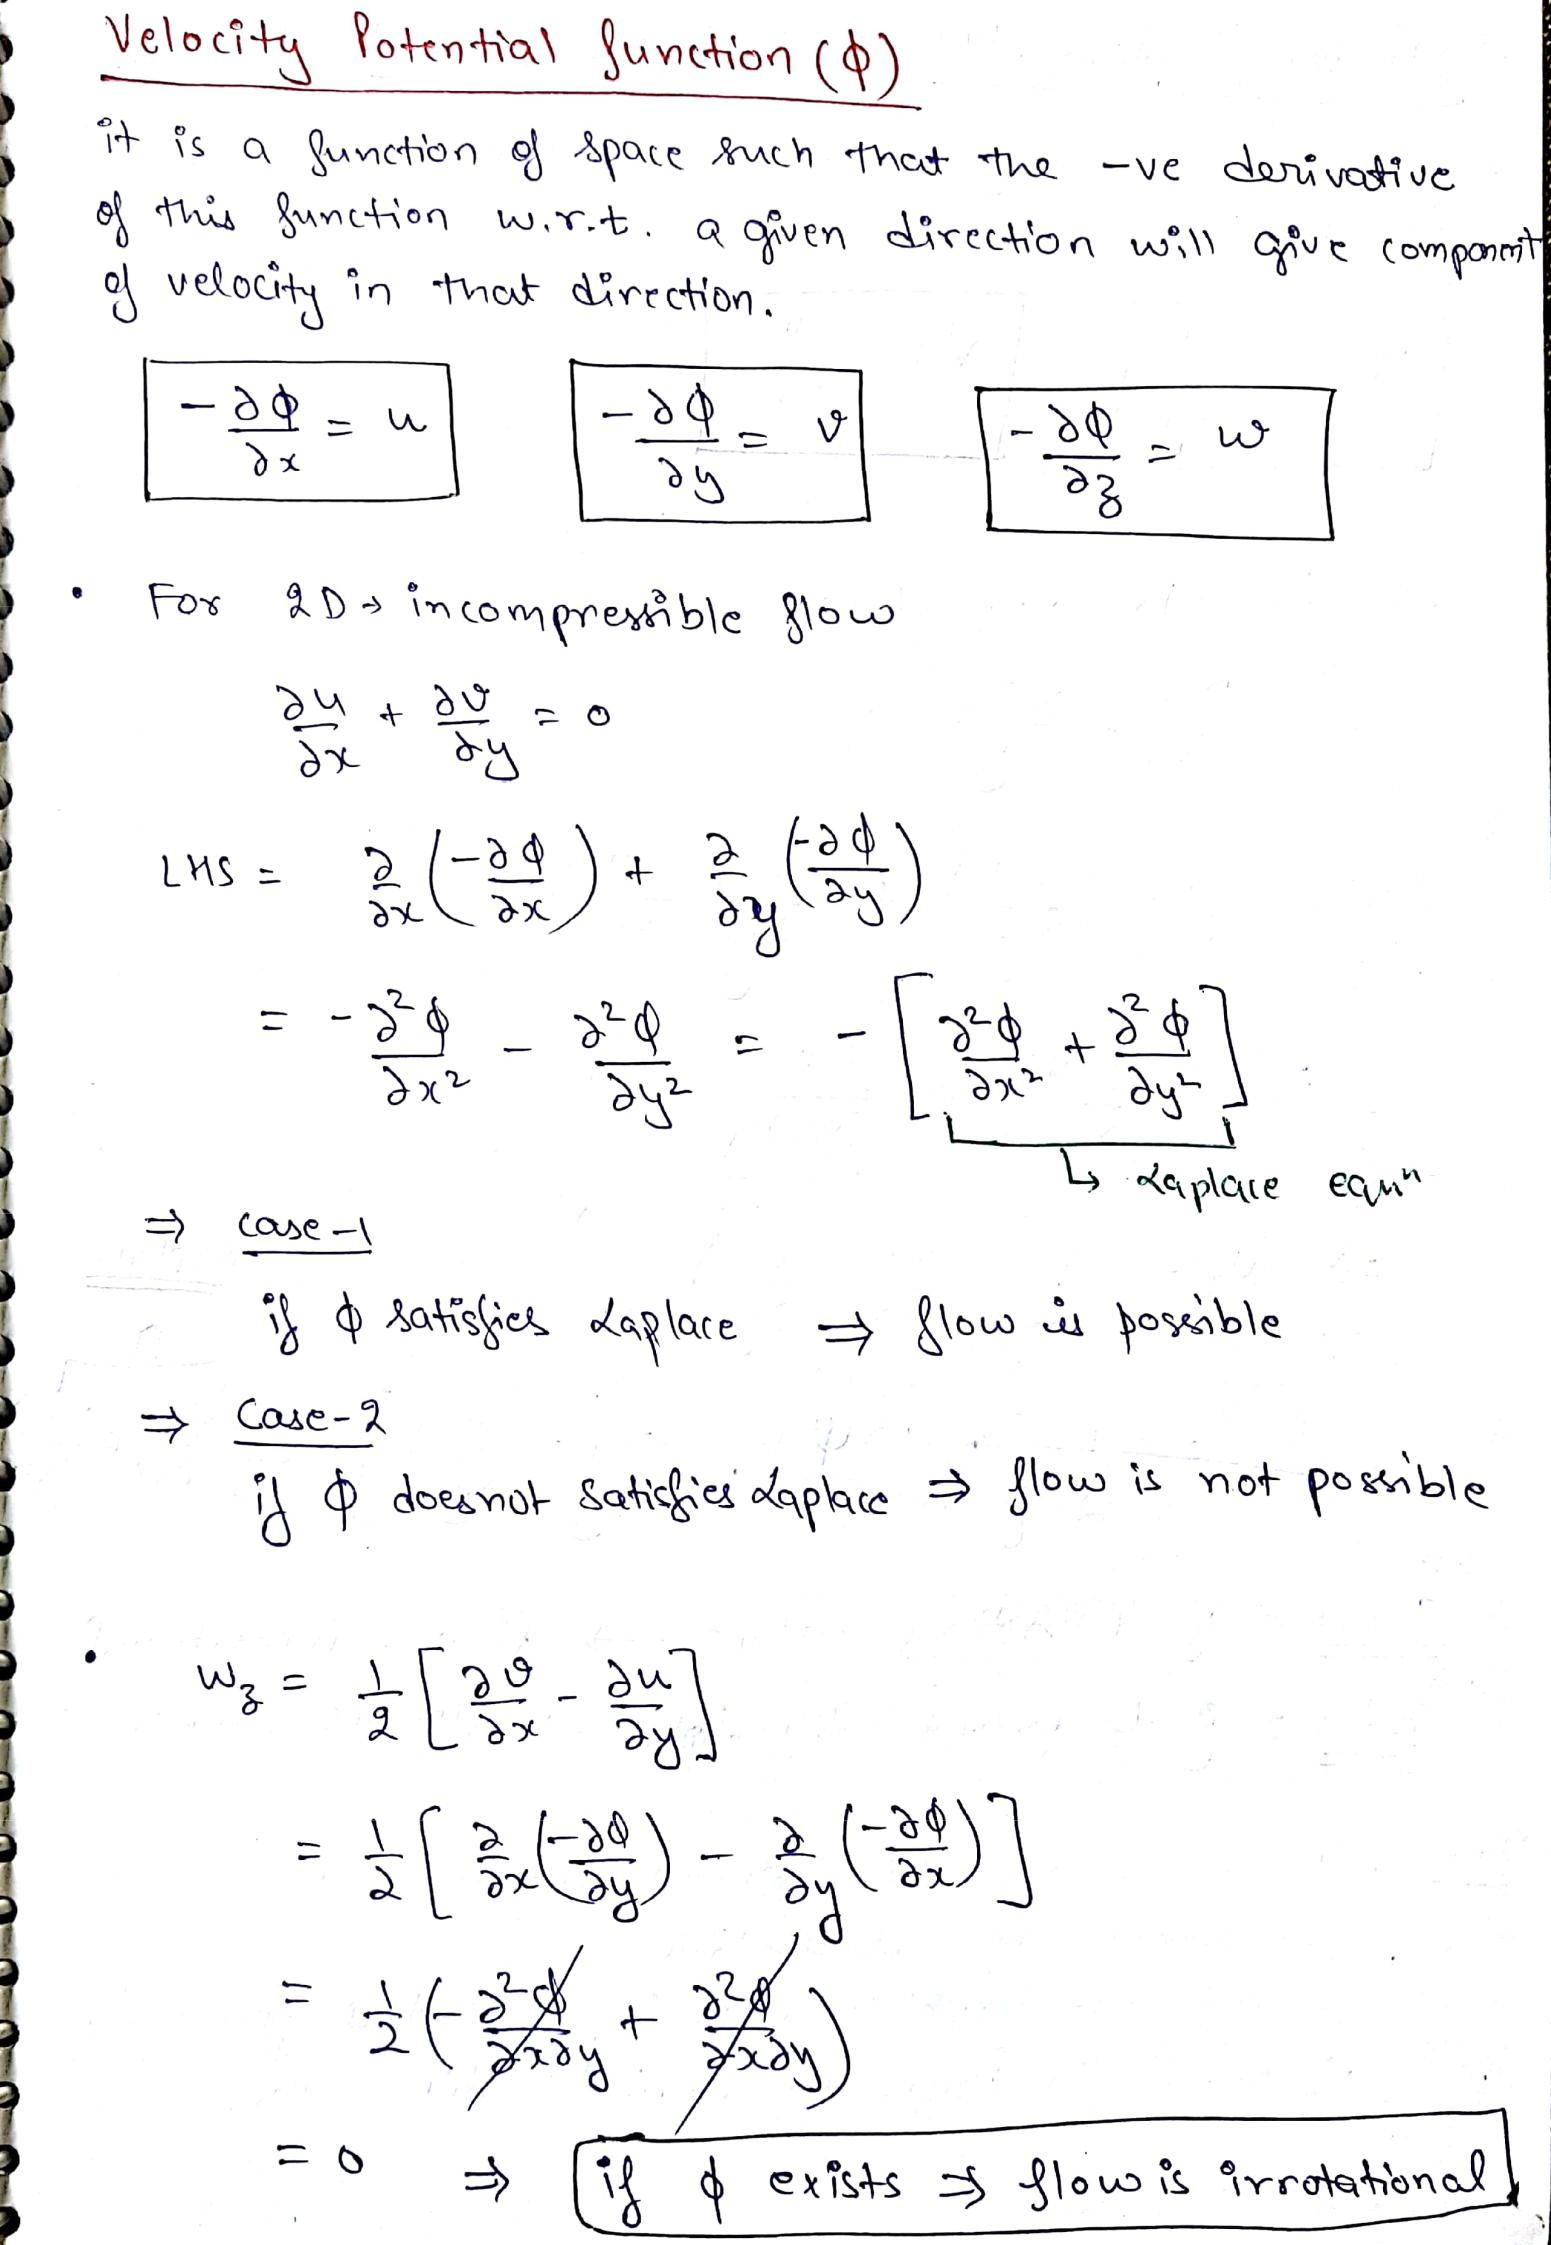 Velocity Potential function (ϕ)
it is a function of space such that the -ve derivative
of this function w.r.t. a given direction will give component
of velocity in that direction.
-∂ϕ/∂x = u    -∂ϕ/∂y = v    -∂ϕ/∂z = w
• For 2D → incompressible flow
∂u/∂x + ∂v/∂y = 0
LHS = ∂/∂x (-∂ϕ/∂x) + ∂/∂y (-∂ϕ/∂y)
= -∂²ϕ/∂x² - ∂²ϕ/∂y² = - [∂²ϕ/∂x² + ∂²ϕ/∂y²]
↳ Laplace eqnⁿ
⇒ case-1
if ϕ satisfies Laplace ⇒ flow is possible
⇒ Case-2
if ϕ doesnot satisfies Laplace ⇒ flow is not possible
• wz = 1/2 [∂v/∂x - ∂u/∂y]
= 1/2 [∂/∂x (-∂ϕ/∂y) - ∂/∂y (-∂ϕ/∂x)]
= 1/2 (-∂²ϕ/∂x∂y + ∂²ϕ/∂x∂y)
= 0 ⇒ if ϕ exists ⇒ flow is irrotational